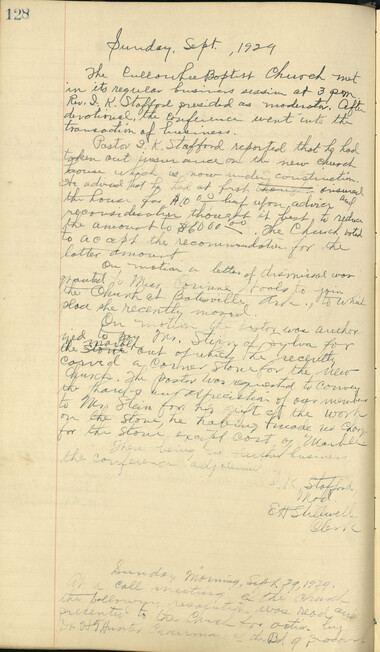 128
Sunday, Sept. , 1929
The Cullowhee Baptist Church met
in its regular business session at 3 p.m.
Rev. I. K. Stafford presided as moderator. After
devotional, the conference went into the
transaction of business.
Pastor I. K. Stafford reported that he had
taken out insurance on the new church
house which is now under construction.
He advised that he had at first insured
the house for but upon advice and
reconsideration thought it best to reduce
the amount to $6000.00. The Church voted
to accept the recommendation for the
latter amount.
On motion a letter of dismissal was
granted to Miss to join
the Church at Batesville, Ark., to what
place she recently moved.
On motion the pastor was author
ized to pay Mr. of Sylva for
the marble out of which he recently
carved a Corner Stone for the New
Church. The pastor was requested to convey
the thanks and appreciation of our members
to Mr. for his gift of the work
on the Stone, he having made no charge
for the Stone except cost of Marble
There being no further business
the conference adjourned.
I. K. Stafford,
Mod.
E H Stillwell
Clerk
Sunday Morning, Sept. 29, 1929.
At a call meeting of the church
the following resolution was read and
presented to the Church for action by
Dr. H T Hunter Chairman of the Bd. of Deacons